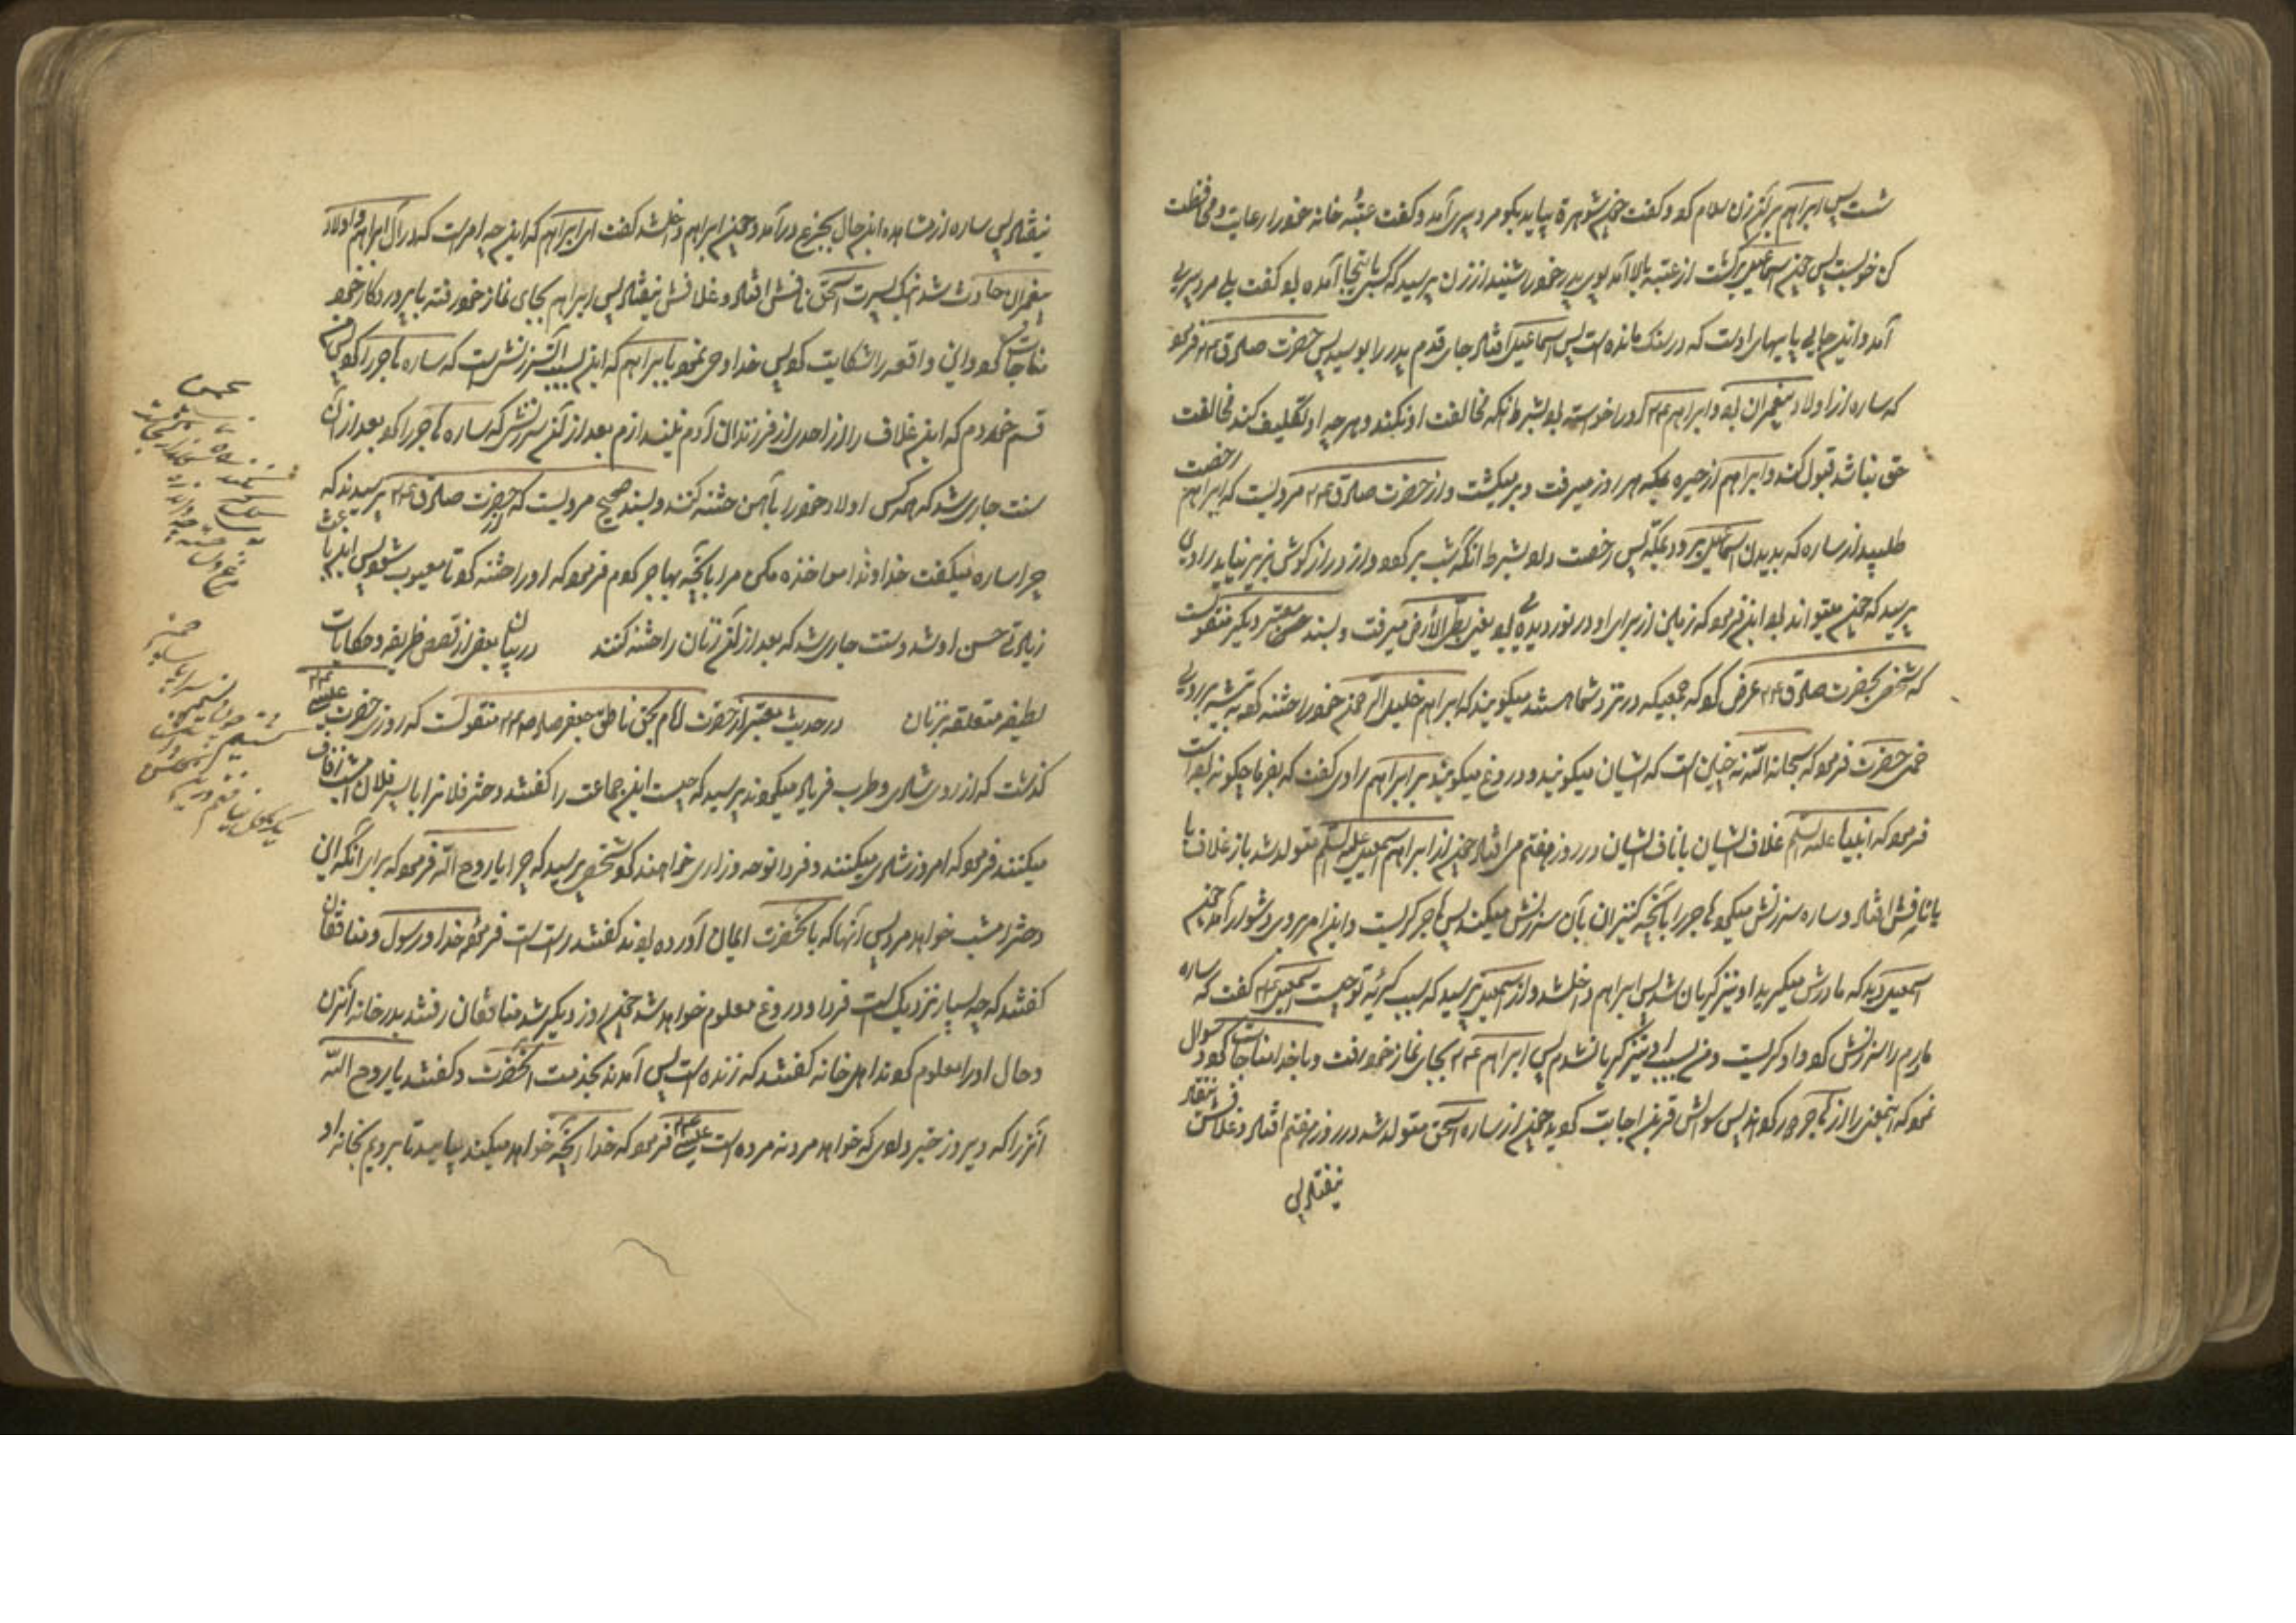 شت پس ابراهیم بر آن زن سلام کرد و گفت چون شوهرت بیاید بگو مرد پیری آمد و گفت عتبه خانه خود را رعایت و محافظت
کن خوبست پس چون اسماعیل برگشت از عتبه بالا آمد بوی پدر خود را شنید از زن پرسید که کسی باینجا آمده بود گفت بلی مرد پیری
آمد و این جای پاهای اوست که در سنک مانده است پس اسماعیل افتاد جای قدم پدر را بوسید پس حضرت صادق ع فرمود
که ساره از اولاد پیغمبران بود و ابراهیم ع او را خواسته بود بشرط آنکه مخالفت او نکند و هر چه او تکلیف کند مخالفت
حق نباشد قبول کند و ابراهیم از حیره بمکه هر روز میرفت و برمیکشت و از حضرت صادق ع مرویست که ابراهیم رخصت
طلبید از ساره که بدیدن اسماعیل برود بمکه پس رخصت داد بشرط آنکه شب برگردد و از دراز گوش بزیر نیاید راوی
پرسید که چون میتواند بود این فرمود که زمین از برای او در نوردیده می بود یعنی بطی الارض میرفت و بسند حسن معتبر دیگر منقولست
که شخصی بحضرت صادق ع عرض کرد که جمعیکه در نزد شما هستند میگویند که ابراهیم خلیل الرحمن خود را ختنه کرد به تیشه بر روی
خمی حضرت فرمود که سبحان الله نه چنان است که ایشان میگویند و دروغ میگویند بر ابراهیم راوی گفت که بفرما چگونه بوده است
فرمود که انبیا علیه السلم غلاف ایشان با ناف ایشان در روز هفتم می افتاد چون از ابراهیم اسمعیل علیه السلم متولد شد باز غلاف با
با نافش افتاد و ساره سرزنش میکرد هاجر را بآنچه کنیزان بآن سرزنش میکنند پس هاجر گریست و این امر بر وی دشوار آمد چون
اسمعیل دید که مادرش میگرید او نیز گریان شد پس ابراهیم داخل شد و از اسمعیل پرسید که سبب گریه تو چیست اسمعیل ع گفت که ساره
مادرم را سرزنش کرد و او گریست و من بسبب او نیز گریان شدم پس ابراهیم ع بجای نماز خود رفت و با خدا مناجات کرد و سوال
نمود که اینمعنی را از هاجر دور گرداند پس سوالش قرین اجابت گردید چون از ساره اسحق متولد شد در روز هفتم افتاد و غلافش
نیفتاد پس
نیفتاد پس ساره از مشاهده این حال بجزع درآمد و چون ابراهیم داخل شد گفت ای ابراهیم که این چه امر است که در آل ابراهیم و اولاد
پیغمبران حادث شد اینک پسرت اسحق نافش افتاد و غلافش نیفتاد پس ابراهیم بجای نماز خود رفته با پروردگار خود
مناجات کرد و این واقعه را شکایت کرد پس خدا وحی نمود بابراهیم که این بسبب آن سرزنش است که ساره هاجر را کرد پس من
قسم خوردم که این غلاف را از احدی از فرزندان آدم نیندازم بعد از آن سرزنش که ساره هاجر را کرد بعد از آن
سنت جاری شد که همه کس اولاد خود را بآهن ختنه کنند و بسند صحیح مرویست که از حضرت صادق ع پرسیدند که
چرا ساره میگفت خداوندا مواخذه مکن مرا بآنچه بهاجر کردم فرمود که او را ختنه کرد تا معیوب شود پس این باعث
زیادتی حسن او شد و سنت جاری شد که بعد از آن زنان را ختنه کنند در بیان بعضی از قصص ظریفه و حکایات
لطیفه متعلقه بزنان در حدیث معتبر از حضرت امام بحق ناطق جعفر صادق ع منقولست که روزی حضرت عیسی ع
گذشت که از روی شادی و طرب فریاد میکردند پرسید که چیست این جماعت را گفتند دختر فلان را با پسر فلان امشب زفاف
میکنند فرمود که امروز شادی میکنند و فردا نوحه و زاری خواهند کرد شخصی پرسید که چرا یا روح الله فرمود که برای آنکه این
دختر امشب خواهد مرد پس آنها که بآنحضرت ایمان آورده بودند گفتند راست است فرموده خدا و رسول و منافقان
گفتند که چه بسیار نزدیک است فردا و دروغ معلوم خواهد شد چون روز دیگر شد منافقان رفتند بدر خانه آنزن
و حال او را معلوم کردند اهل خانه گفتند که زنده است پس آمدند بخدمت آنحضرت و گفتند یا روح الله
آنزن را که دیروز خبر دادی که خواهد مرد نه مرده است عیسی ع فرمود که خدا آنچه خواهد میکند بیایید تا برویم بخانه او